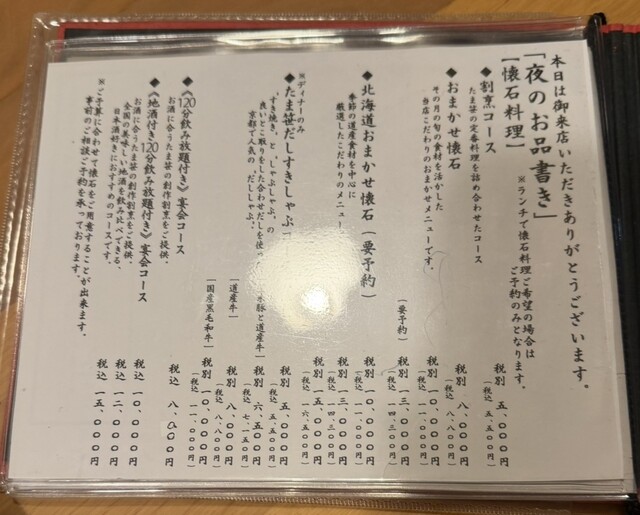 本日は御来店いただきありがとうございます。
「夜のお品書き」
【懐石料理】
※ランチで懐石料理ご希望の場合は
ご予約のみとなります。
◆割烹コース
たま笹の定番料理を詰め合わせたコース
税別 五、〇〇〇円
(税込 五、五〇〇円)
◆おまかせ懐石
その月の旬の食材を活かした
当店こだわりのおまかせメニューです。
税別 八、〇〇〇円
(税込 八、八〇〇円)
税別 一〇、〇〇〇円
(税込 一一、〇〇〇円)
(要予約)
税別 一三、〇〇〇円
(税込 一四、三〇〇円)
◆北海道おまかせ懐石(要予約)
季節の道産食材を中心に
厳選したこだわりのメニュー
税別 一〇、〇〇〇円
(税込 一一、〇〇〇円)
税別 一三、〇〇〇円
(税込 一四、三〇〇円)
税別 一五、〇〇〇円
(税込 一六、五〇〇円)
◆たま笹だしすきしゃぶ
※ディナーのみ
「すき焼き」と「しゃぶしゃぶ」の
良いとこ取りをした合わせだしを使っ
京都で人気の「だししゃぶ」
豚と道産牛】
税別 五、〇〇〇円
(税込 五、五〇〇円)
【道産牛】
税別 六、五〇〇円
(税込 七、一五〇円)
税別 八、〇〇〇円
(税込 八、八〇〇円)
【国産黒毛和牛】
税別 一〇、〇〇〇円
(税込 一一、〇〇〇円)
◆《120分飲み放題付き》宴会コース
お酒に合うたま笹の創作割烹をご提供。
税込 八、〇〇〇円
◆《地酒付き120分飲み放題付き》宴会コース
お酒に合うたま笹の創作割烹をご提供。
全国の美味しい地酒を飲み比べできる、
日本酒好きにおすすめのコースです。
税込 一〇、〇〇〇円
税込 一二、〇〇〇円
税込 一五、〇〇〇円
※ご予算に合わせて懐石をご用意することが出来ます。
事前のご相談ご予約を承っております。